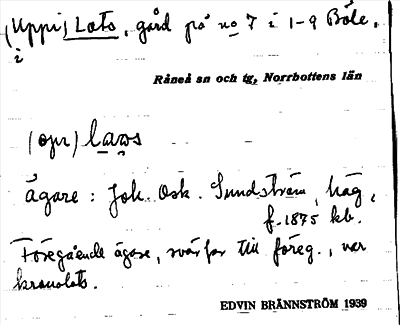 (Uppi) Lots, gård på no 7 i 1-9 Böle.
i
Råneå sn och tg, Norrbottens län
(opr) laɷs
Ägare: Joh. Osk. Sundström, häg,
f. 1875 kb.
Föregående ägare, svärfar till föreg., var
kronolots.
EDVIN BRÄNNSTRÖM 1939